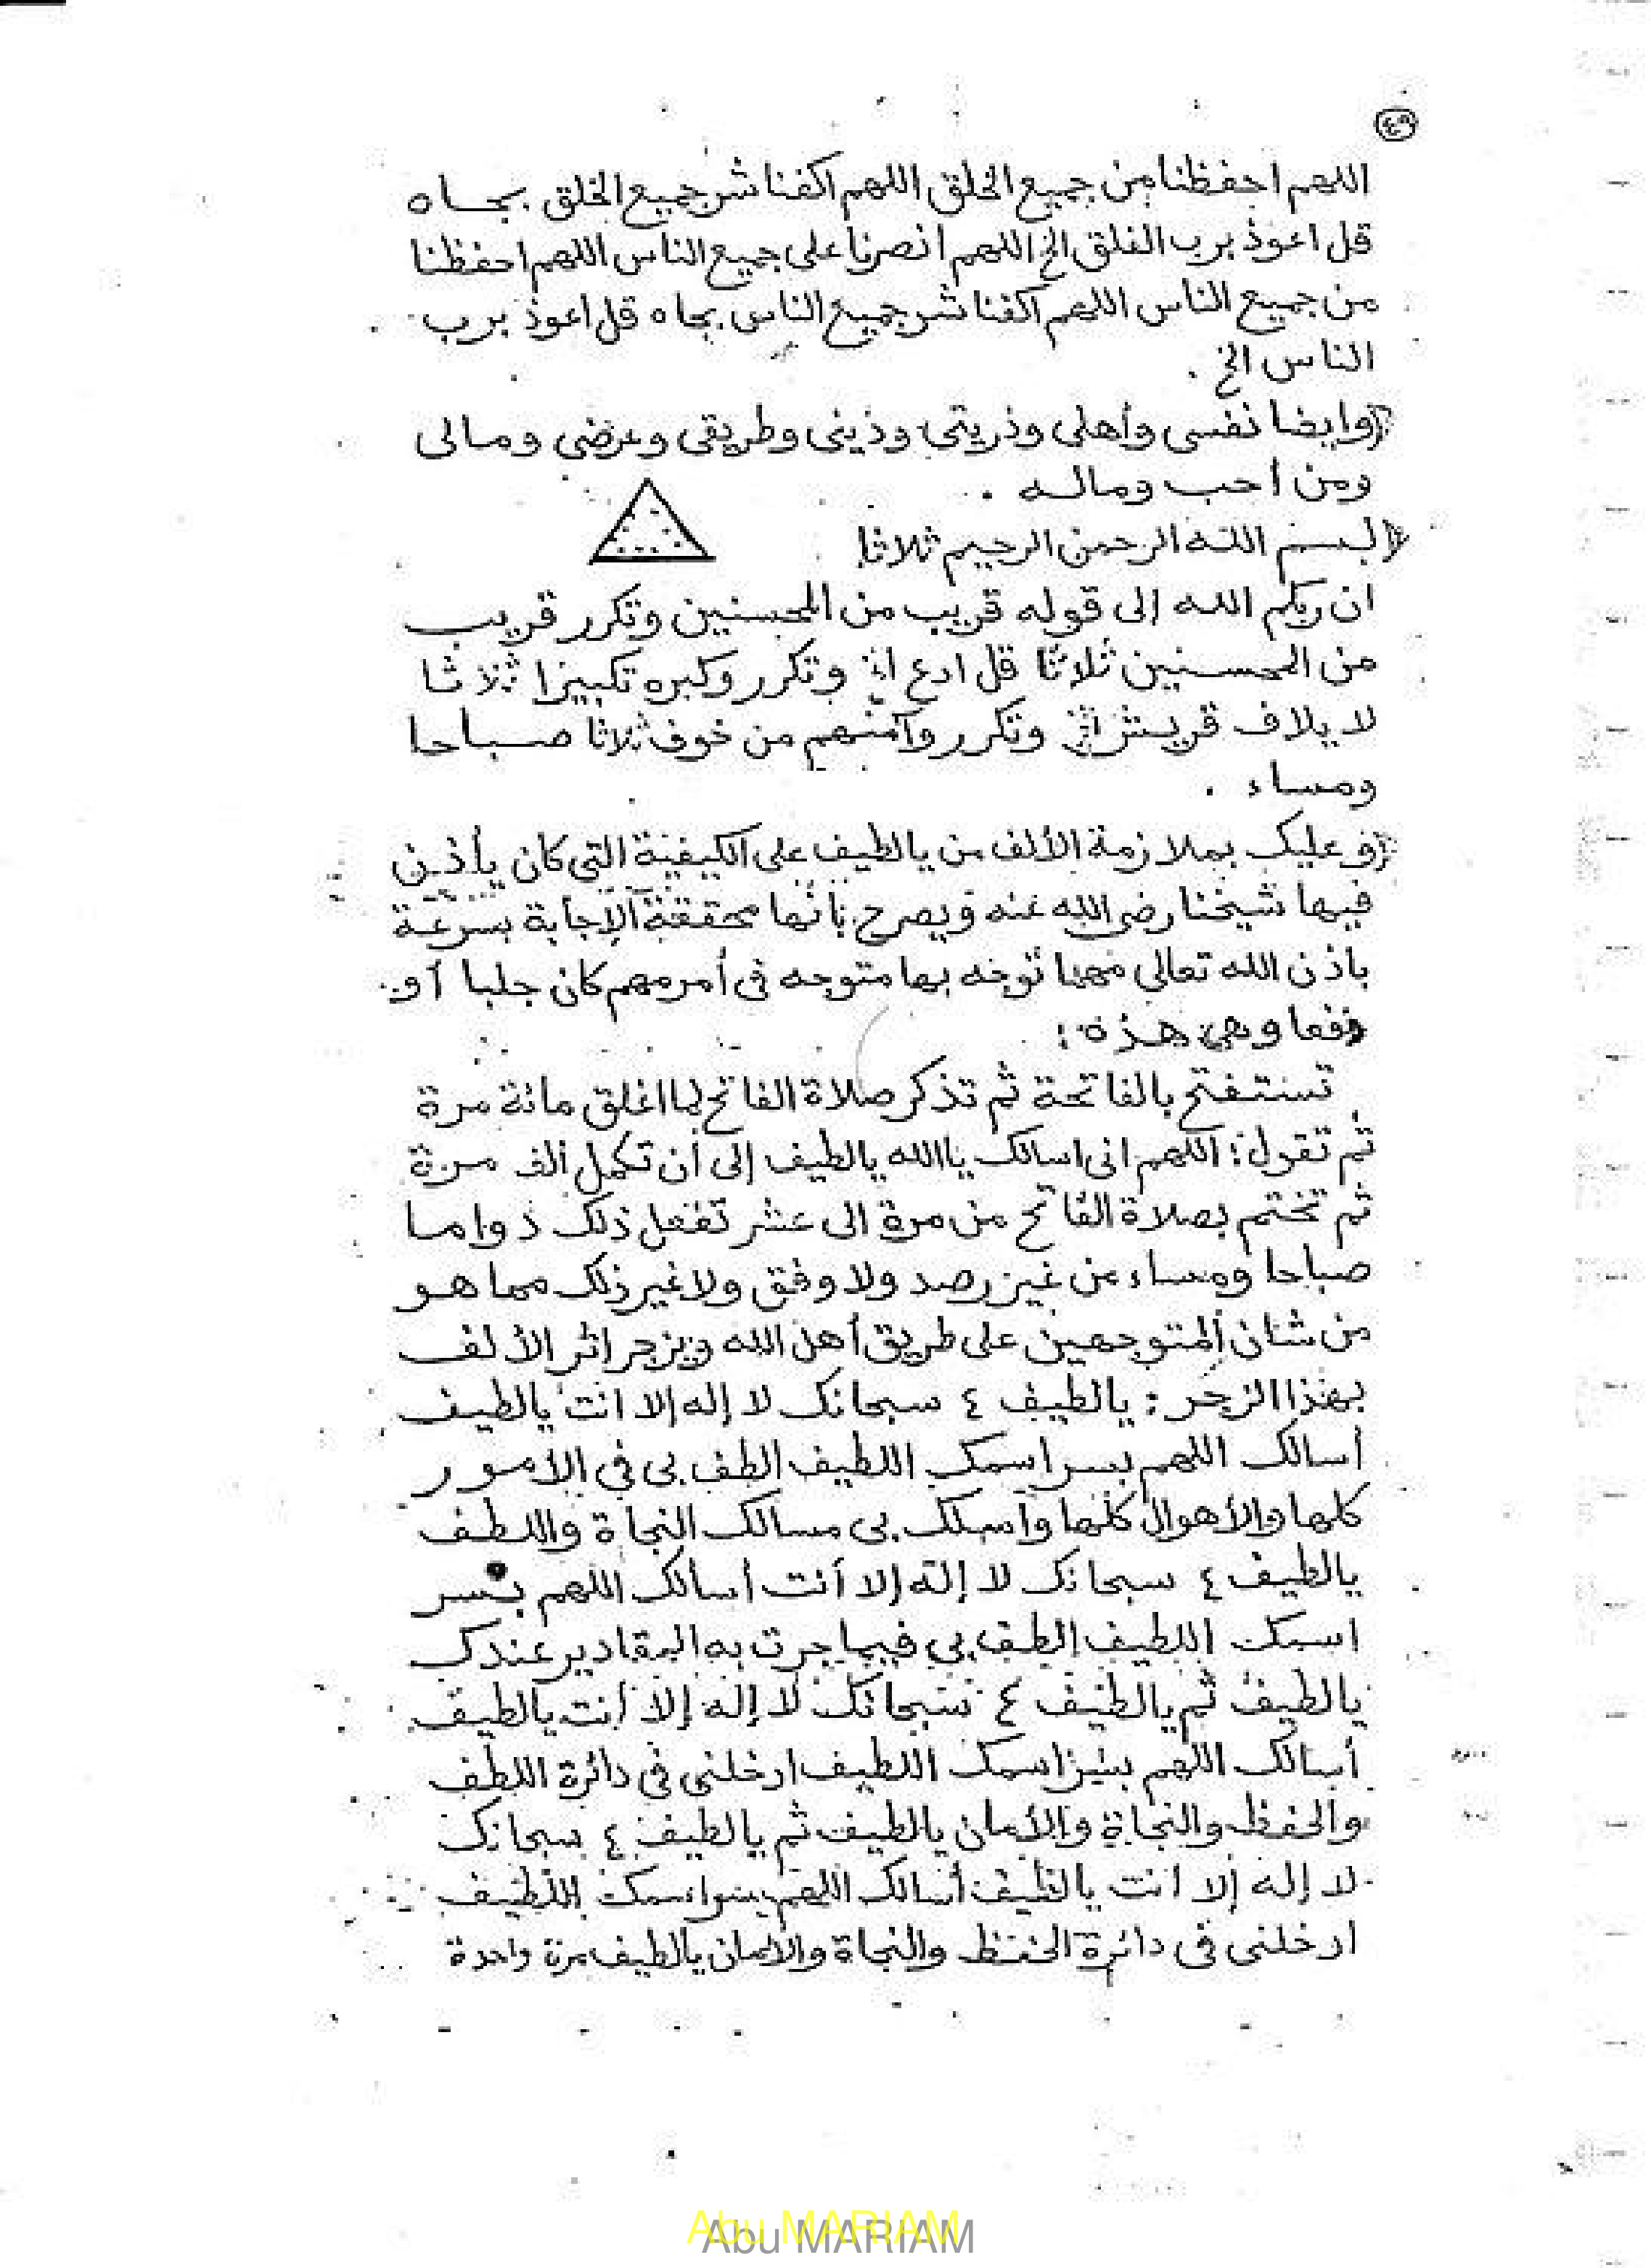 ٤٩
اللهم احفظنا من جميع الخلق اللهم اكفنا شر جميع الخلق بجاه
قل اعوذ برب الفلق الخ اللهم انصرنا على جميع الناس اللهم احفظنا
من جميع الناس اللهم اكفنا شر جميع الناس بجاه قل اعوذ برب
الناس الخ .
وايضا نفسى وأهلى وذريتى ودينى وطريقى وعرضى ومالى
ومن احب وماله .
بسم الله الرحمن الرحيم ثلاثا
ان ربكم الله إلى قوله قريب من المحسنين وتكرر قريب
من المحسنين ثلاثا قل ادع الخ وتكرر وكبره تكبيرا ثلاثا
لايلاف قريش الخ وتكرر وآمنهم من خوف ثلاثا صباحا
ومساء .
وعليك بملازمة الألف من يالطيف على الكيفية التى كان يأذن
فيها شيخنا رضى الله عنه ويصرح بأنها محققة الإجابة بسرعة
باذن الله تعالى مهما توجه بها متوجه فى أمر مهم كان جلبا أو
دفعا وهى هذه :
تستفتح بالفاتحة ثم تذكر صلاة الفاتح لما اغلق مائة مرة
ثم تقول : اللهم انى اسالك ياالله يالطيف إلى أن تكمل ألف مرة
ثم تختم بصلاة الفاتح من مرة الى عشر تفعل ذلك دواما
صباحا ومساء من غير رصد ولا وفق ولا غير ذلك مما هو
من شان المتوجهين على طريق أهل الله ويزجر اثر الألف
بهذا الزجر : يالطيف ٤ سبحانك لا إله إلا انت يالطيف
أسالك اللهم بسر اسمك اللطيف الطف بى في الأمور
كلها والأهوال كلها وأسلك بى مسالك النجاة واللطف
يالطيف ٤ سبحانك لا إله إلا أنت أسألك اللهم بسر
اسمك اللطيف الطف بي فيما جرت به المقادير عندك
يالطيف ثم يالطيف ٤ سبحانك لا إله إلا أنت يالطيف
أسالك اللهم بسر اسمك اللطيف ادخلنى فى دائرة اللطف
والحفظ والنجاة والأمان يالطيف ثم يالطيف ٤ سبحانك
لا إله إلا انت يالطيف أسالك اللهم بسر اسمك اللطيف
ادخلنى فى دائرة الحفظ والنجاة والأمان يالطيف مرة واحدة
Abu MARIAM
Abu MARIAM